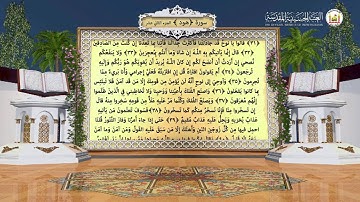 العتبة الحسينية المقدسة
سورة ﴿هود﴾ الجزء الثاني عشر
(٣١) قالوا يا نوح قد جادلتنا فأكثرت جدالنا فأتنا بما تعدنا إن كنت من الصادقين
(٣٢) قال إنما يأتيكم به الله إن شاء وما أنتم بمعجزين (٣٣) ولا ينفعكم
نصحي إن أردت أن أنصح لكم إن كان الله يريد أن يغويكم هو ربكم وإليه
ترجعون (٣٤) أم يقولون افتراه قل إن افتريته فعلي إجرامي وأنا بريء مما
تجرمون (٣٥) وأوحي إلى نوح أنه لن يؤمن من قومك إلا من قد آمن فلا تبتئس
بما كانوا يفعلون (٣٦) واصنع الفلك بأعيننا ووحينا ولا تخاطبني في الذين ظلموا
إنهم مغرقون (٣٧) ويصنع الفلك وكلما مر عليه ملأ من قومه سخروا منه قال
إن تسخروا منا فإنا نسخر منكم كما تسخرون (٣٨) فسوف تعلمون من يأتيه
عذاب يخزيه ويحل عليه عذاب مقيم (٣٩) حتى إذا جاء أمرنا وفار التنور قلنا
احمل فيها من كل زوجين اثنين وأهلك إلا من سبق عليه القول ومن آمن وما آمن